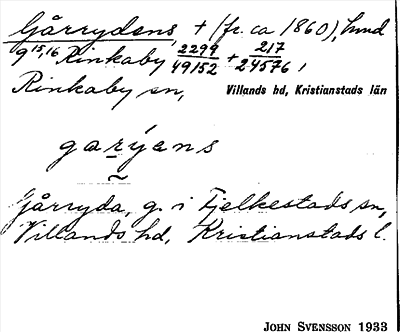 Gårrydens, + (fr. ca 1860), hmd
9 15,16 Rinkaby 2299/49152 + 217/24576,
Rinkaby sn, Villands hd, Kristianstads län
garýens
Gårryda, g. i Fjelkestads sn,
Villands hd, Kristianstads l.
JOHN SVENSSON 1933